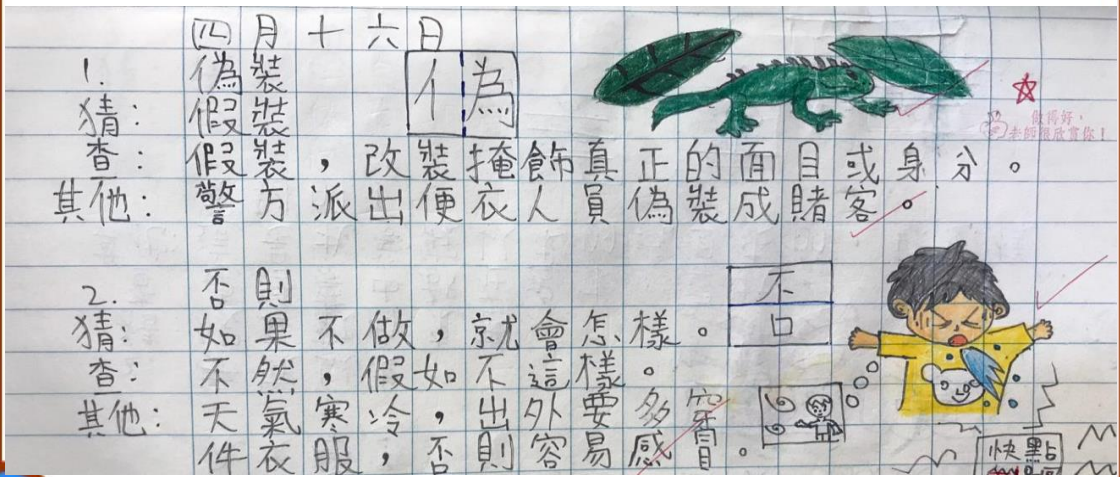 四月十六日
1. 偽裝
亻為
猜：假裝
做得好，
老師很欣賞你！
查：假裝，改裝掩飾真正的面目或身分。
其他：警方派出便衣人員偽裝成賭客。
2. 否則
不
口
猜：如果不做，就會怎樣。
查：不然，假如不這樣。
其他：天氣寒冷，出外要多穿
件衣服，否則容易感冒。
快點